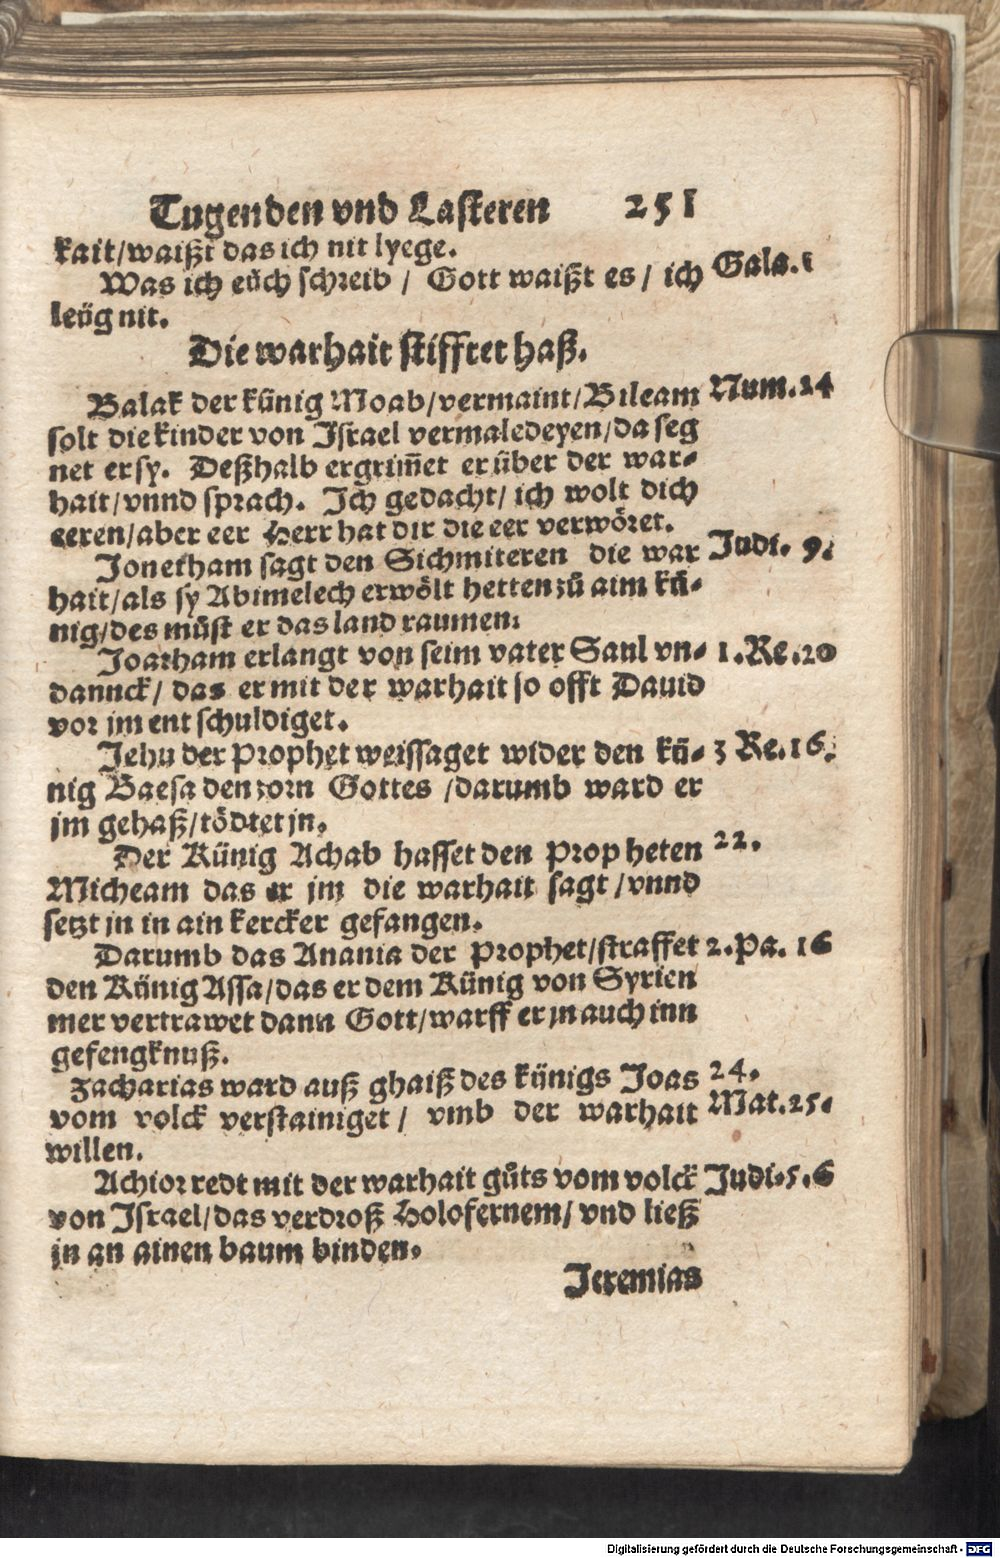 Tugenden vnd Lasteren 251
kait/waißt das ich nit lyege.
Was ich eüch schreib / Gott waißt es / ich Gala.1
leüg nit.
Die warhait stifftet haß.
Balak der künig Moab/vermaint/Bileam Num.24
solt die kinder von Israel vermaledeyen/da seg
net er sy. Deßhalb ergrim̄et er über der war-
hait/vnnd sprach. Ich gedacht/ ich wolt dich
eeren/aber eer Herr hat dir die eer verwöret.
Jonetham sagt den Sichmiteren die war Judi. 9.
hait/als sy Abimelech erwölt hetten zů aim kü-
nig/des můst er das land raumen.
Joatham erlangt von seim vater Saul vn- 1.Re.20
dannck/ das er mit der warhait so offt Dauid
vor jm ent schuldiget.
Jehu der Prophet weissaget wider den kü- 3 Re.16.
nig Baesa den zorn Gottes /darumb ward er
jm gehaß/tödtet jn.
Der Künig Achab hasset den Prop heten 22.
Micheam das er jm die warhait sagt /vnnd
setzt jn in ain kercker gefangen.
Darumb das Anania der Prophet/straffet 2.Pa. 16
den Künig Assa/das er dem Künig von Syrien
mer vertrawet dann Gott/warff er jn auch inn
gefengknuß.
Zacharias ward auß ghaiß des künigs Joas 24.
vom volck verstainiget / vmb der warhait Mat.25.
willen.
Achior redt mit der warhait gůts vom volck Judi.5.6
von Israel/das verdroß Holofernem/ vnd ließ
jn an ainen baum binden.
Jeremias
Digitalisierung gefördert durch die Deutsche Forschungsgemeinschaft - DFG